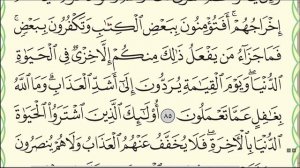 إِخْرَاجُهُمْ ۚ أَفَتُؤْمِنُونَ بِبَعْضِ ٱلْكِتَٰبِ وَتَكْفُرُونَ بِبَعْضٍ ۚ
فَمَا جَزَآءُ مَن يَفْعَلُ ذَٰلِكَ مِنكُمْ إِلَّا خِزْىٌ فِى ٱلْحَيَوٰةِ
ٱلدُّنْيَا ۖ وَيَوْمَ ٱلْقِيَٰمَةِ يُرَدُّونَ إِلَىٰٓ أَشَدِّ ٱلْعَذَابِ ۗ وَمَا ٱللَّهُ
بِغَٰفِلٍ عَمَّا تَعْمَلُونَ ٨٥ أُو۟لَٰٓئِكَ ٱلَّذِينَ ٱشْتَرَوُا۟ ٱلْحَيَوٰةَ
ٱلدُّنْيَا بِٱلْءَاخِرَةِ ۖ فَلَا يُخَفَّفُ عَنْهُمُ ٱلْعَذَابُ وَلَا هُمْ يُنصَرُونَ